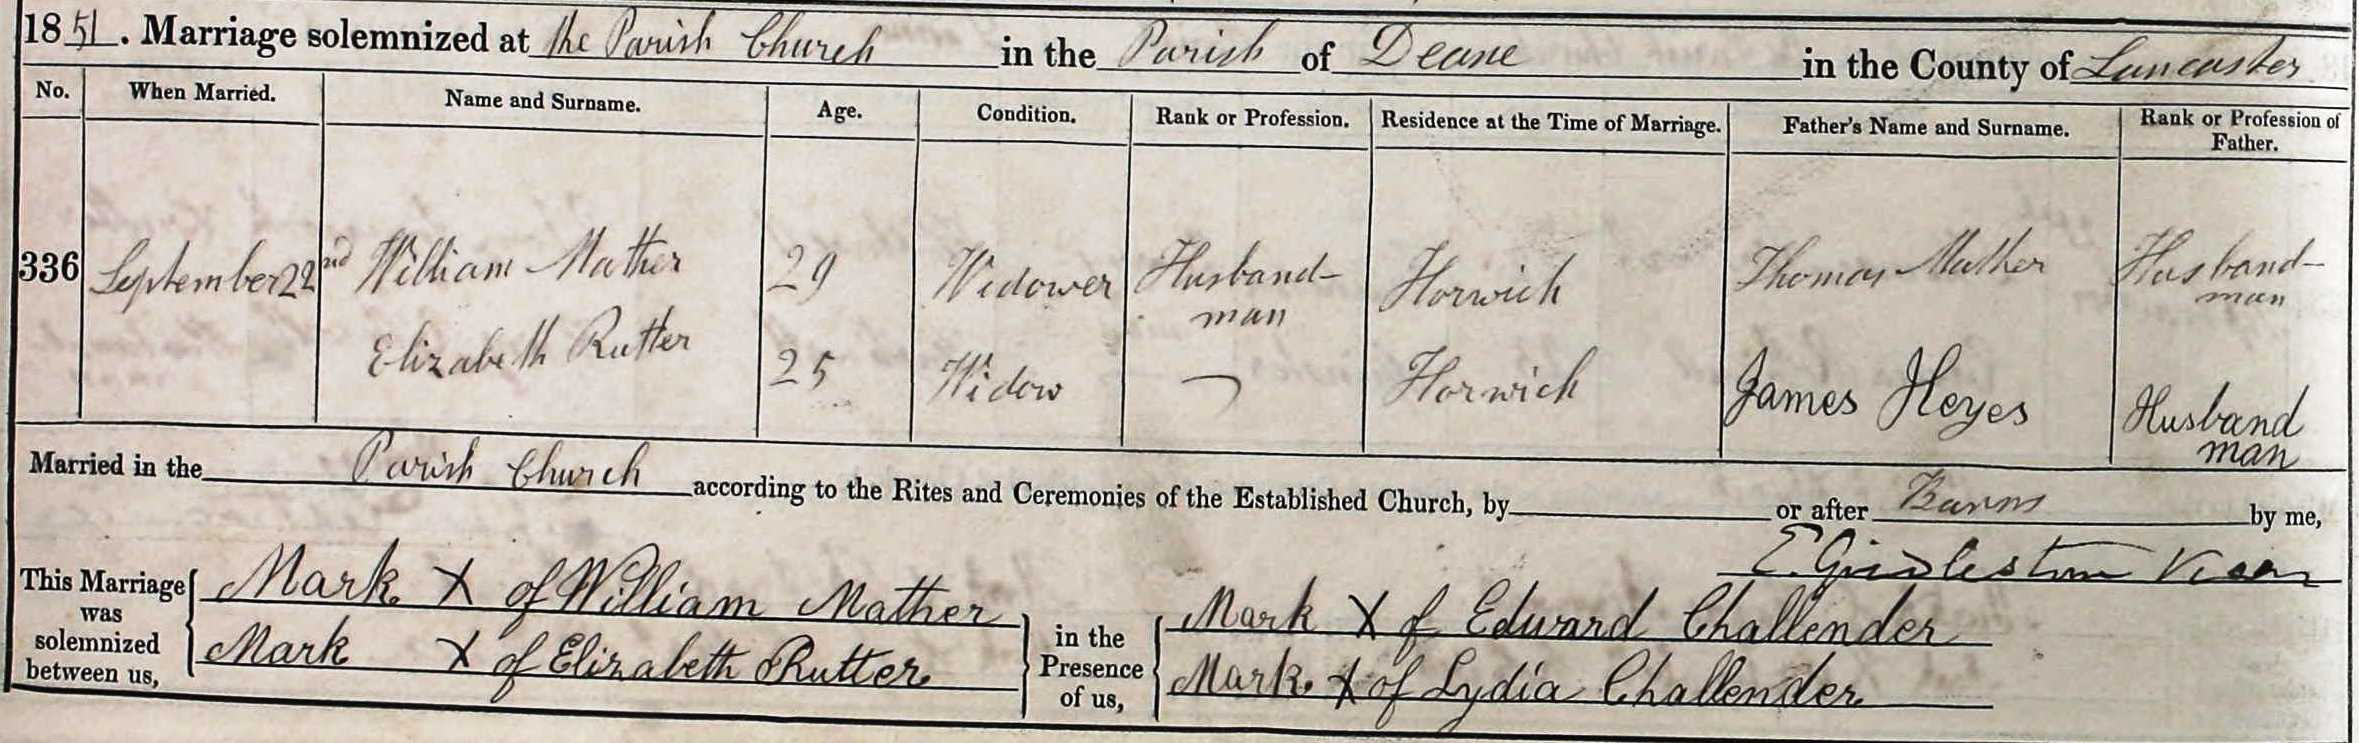 1851. Marriage solemnized at the Parish Church in the Parish of Deane in the County of Lancaster
No. When Married. Name and Surname. Age. Condition. Rank or Profession. Residence at the Time of Marriage. Father's Name and Surname. Rank or Profession of Father.
336 September 22nd William Mather 29 Widower Husband-man Horwich Thomas Mather Husband-man
Elizabeth Rutter 25 Widow Horwich James Heyes Husband man
Married in the Parish Church according to the Rites and Ceremonies of the Established Church, by or after Banns by me,
E. Girdlestone Vicar
This Marriage was solemnized between us,
Mark X of William Mather
Mark X of Elizabeth Rutter
in the Presence of us,
Mark X of Edward Challender
Mark X of Lydia Challender